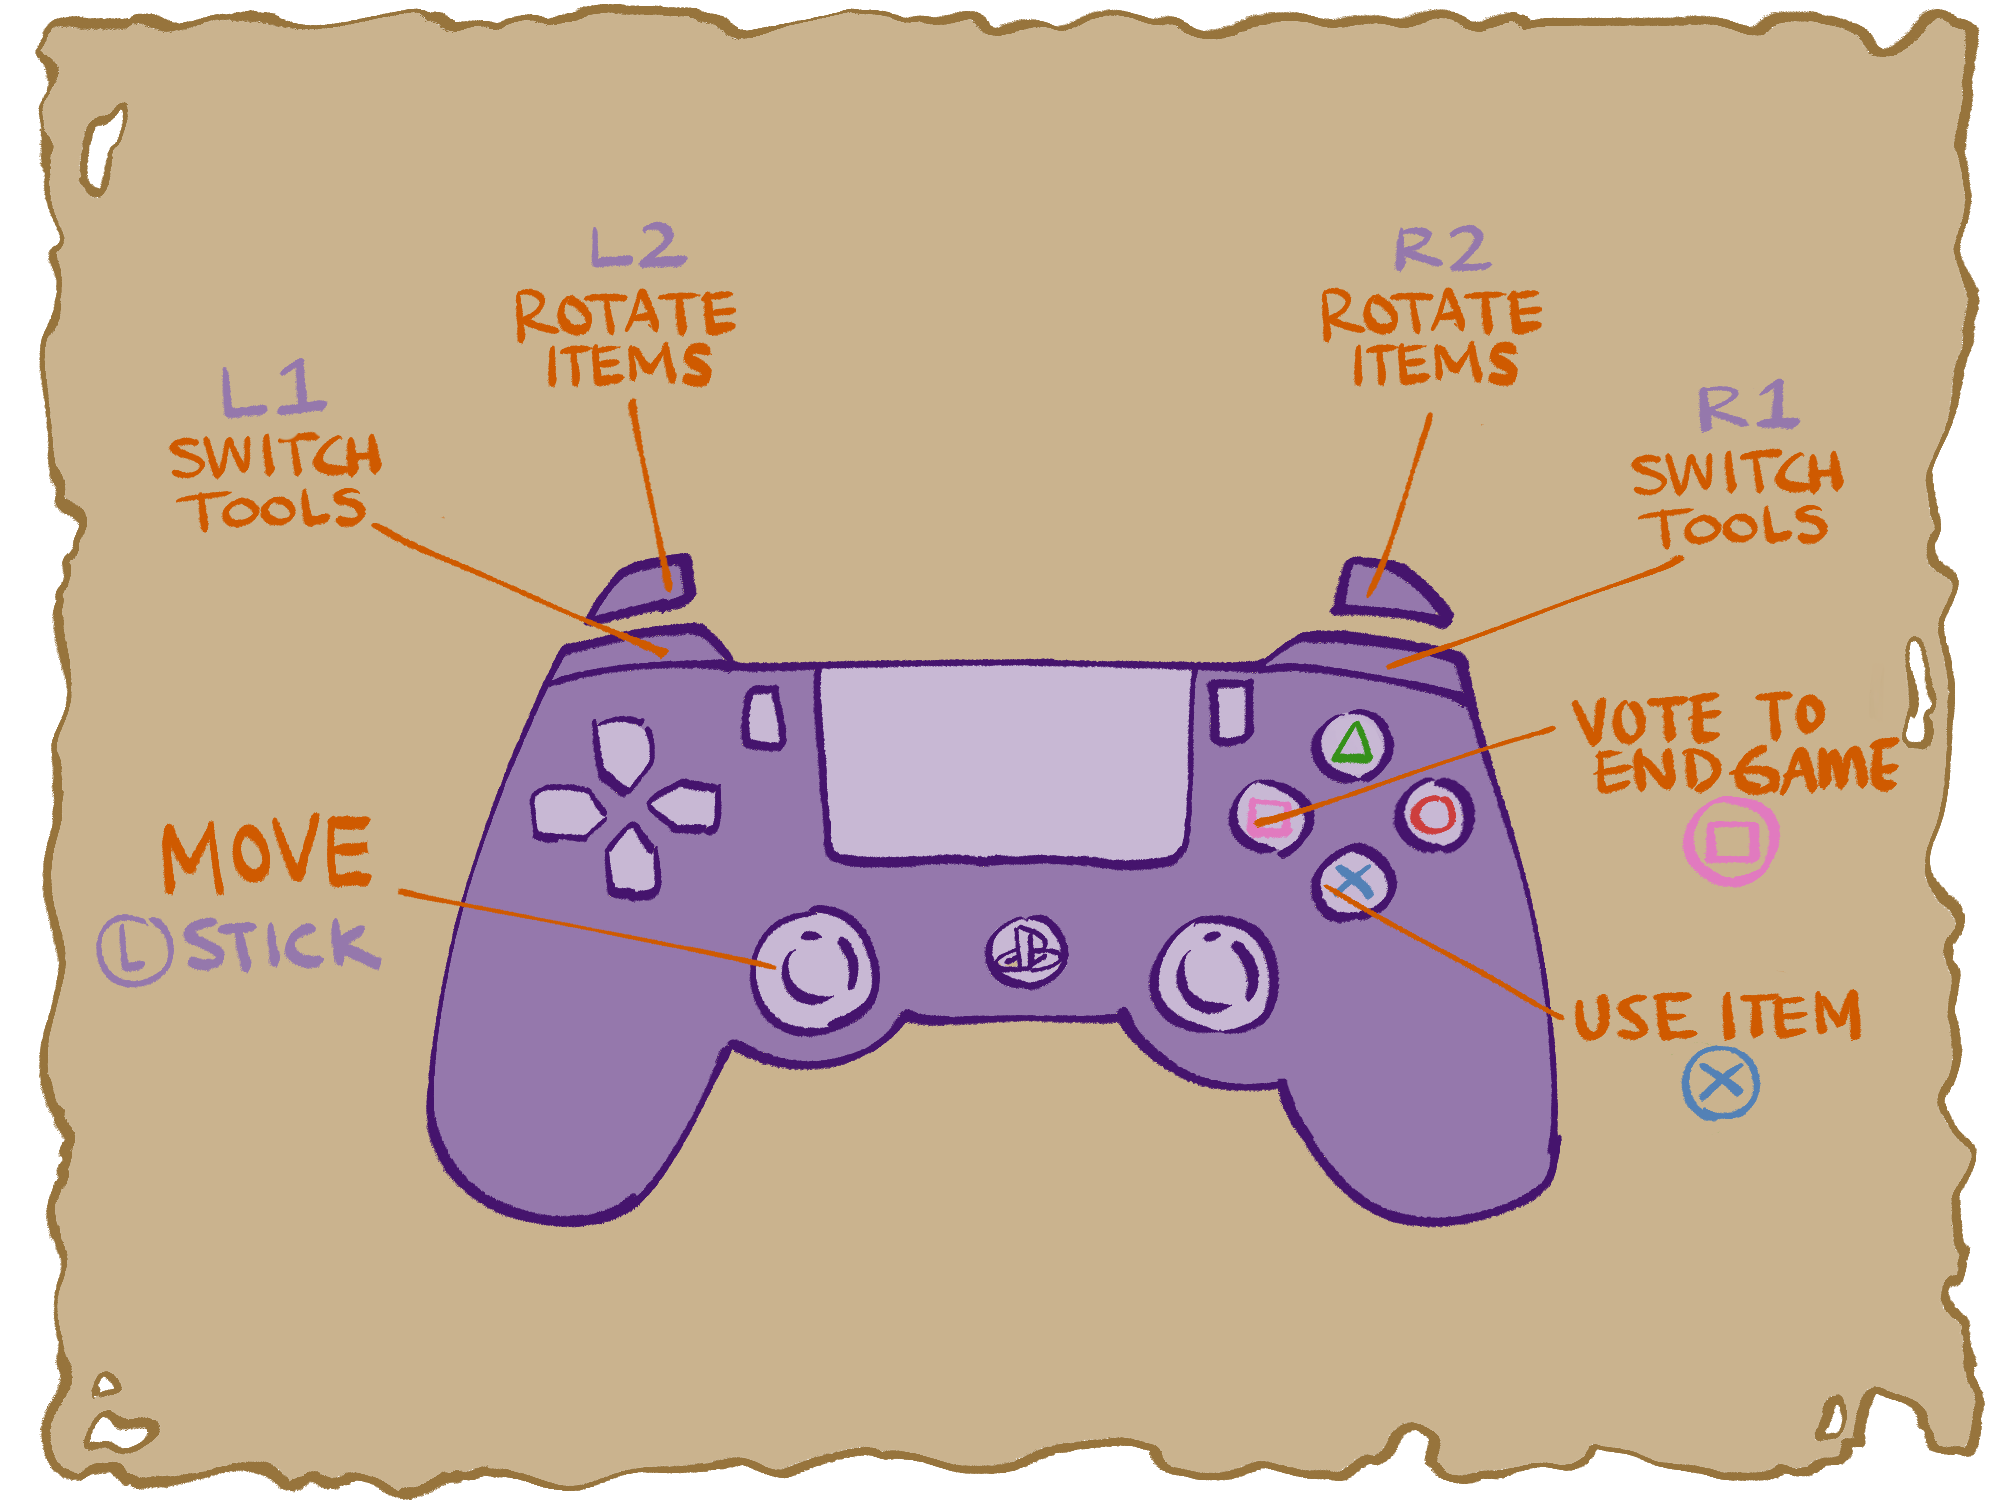 L2
ROTATE
ITEMS
R2
ROTATE
ITEMS
L1
SWITCH
TOOLS
R1
SWITCH
TOOLS
VOTE TO
END GAME
MOVE
L STICK
USE ITEM